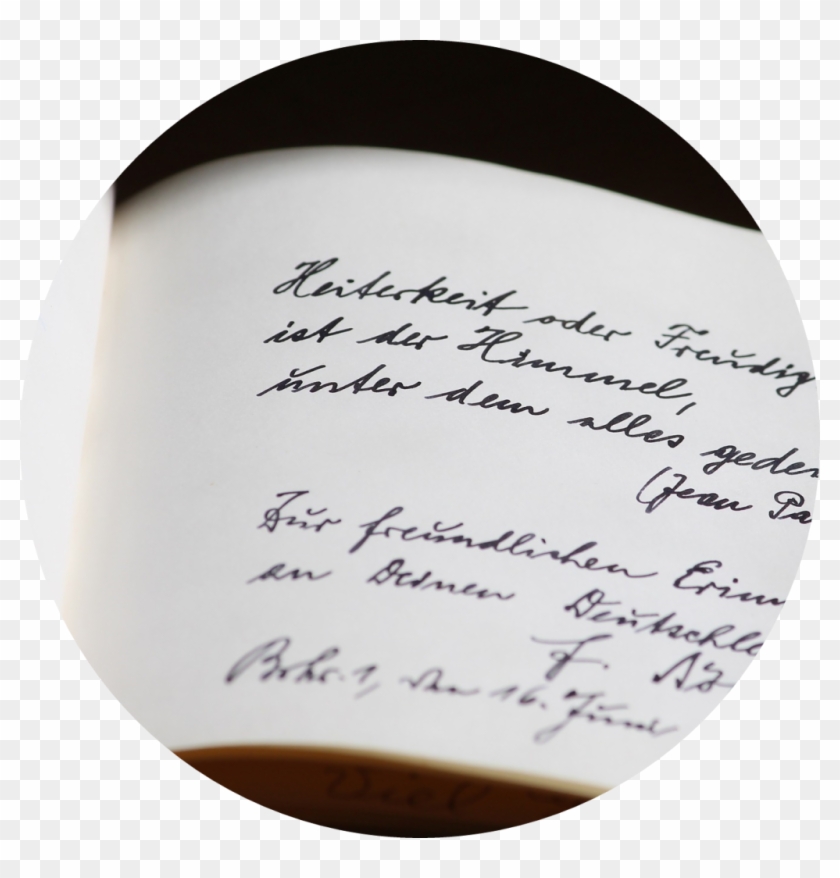 Heiterkeit oder Freudig
ist der Himmel,
unter dem alles gede
(Jean Pa
Zur freundlichen Erin
an Deinen Deutschle
F.
den 16. Juni